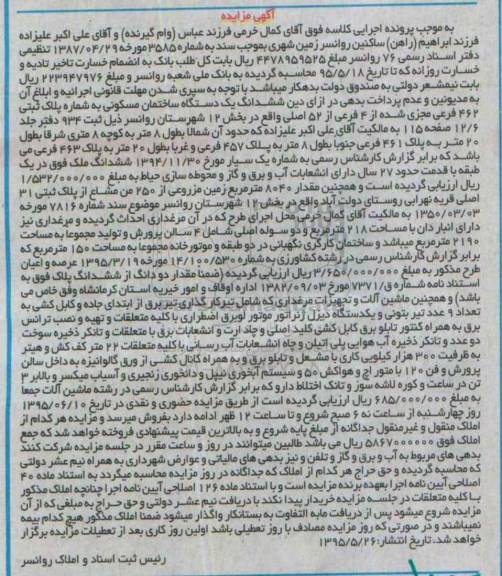 آگهی مزایده
به موجب پرونده اجرایی کلاسه فوق آقای کمال خرمی فرزند عباس (وام گیرنده) و آقای علی اکبر علیزاده
فرزند ابراهیم (راهن) ساکنین روانسر زمین شهری بموجب سند به شماره ۳۵۸۵۰ مورخه ۱۳۸۷/۰۴/۲۹ تنظیمی
دفتر اسناد رسمی ۷۶ روانسر مبلغ ۴۴۷۸۹۵۹۵۲۵ ریال بابت کل طلب بانک به انضمام خسارت تاخیر تادیه و
خسارت روزانه که تا تاریخ ۹۵/۵/۱۸ محاسبه گردیده به بانک ملی شعبه روانسر و مبلغ ۲۲۳۹۴۷۹۷۶ ریال
بابت نیمعشر دولتی به صندوق دولت بدهکار میباشد با توجه به سپری شدن مهلت قانونی اجرائیه و ابلاغ آن
به مدیونین و عدم پرداخت بدهی در ازای دین ششدانگ یک دستگاه ساختمان مسکونی به شماره پلاک ثبتی
۴۶۲ فرعی مجزی شده از ۴ فرعی از ۵۲ اصلی واقع در بخش ۱۲ شهرستان روانسر ذیل ثبت ۹۳۴ دفتر جلد
۱۲/۶ صفحه ۱۱۵ به مالکیت آقای علی اکبر علیزاده که حدود آن شمالا بطول ۸ متر به کوچه ۸ متری شرقا بطول
۲۰ متر به پلاک ۴۶۱ فرعی جنوبا بطول ۸ متر به پلاک ۴۵۷ فرعی و غربا بطول ۲۰ متر به پلاک ۴۶۳ فرعی می
باشد که برابر گزارش کارشناس رسمی به شماره یک سیار مورخ ۱۳۹۴/۱۱/۳۰ ششدانگ ملک فوق در یک
طبقه با قدمت حدود ۲۷ سال دارای انشعابات آب و برق و گاز و محوطه سازی حیاط به مبلغ ۱/۵۳۲/۰۰۰/۰۰۰
ریال ارزیابی گردیده است و همچنین مقدار ۸۰۴۰ مترمربع زمین مزروعی از ۲۵۰ من مشاع از پلاک ثبتی ۳۱
اصلی قریه نهرابی روستای دولت آباد واقع در بخش ۱۲ شهرستان روانسر موضوع سند شماره ۷۸۱۶ مورخه
۱۳۵۰/۰۳/۰۳ به مالکیت آقای کمال خرمی محل اجرای طرح که در آن مرغداری احداث گردیده و مرغداری نیز
دارای انبار دان با مساحت ۲۱۸ مترمربع و دو سوله اصلی شامل ۴ سالن پرورش و تولید مجموعا به مساحت
۲۱۹۰ مترمربع میباشد و ساختمان کارگری نگهبانی در دو طبقه و موتورخانه مجموعا به مساحت ۱۵۰ مترمربع که
برابر گزارش کارشناس رسمی در رشته کشاورزی به شماره ۱۴/۱۰۰/۵۳۰ مورخه ۱۳۹۵/۳/۱۹ عرصه و اعیان
طرح مذکور به مبلغ ۳/۶۵۰/۰۰۰/۰۰۰ ریال ارزیابی گردیده (ضمنا مقدار دو دانگ از ششدانگ پلاک فوق به
استناد نامه شماره ق/۷۳۷۱ مورخ ۱۳۸۲/۰۹/۰۳ اداره اوقاف و امور خیریه استان کرمانشاه وقف خاص می
باشد) و همچنین ماشین آلات و تجهیزات مرغداری که شامل تیر کارگذاری تیر برق از ابتدای جاده و کابل کشی به
تعداد ۹ عدد تیر بتونی و یکدستگاه دیزل ژنراتور موتور لوبرق اضطراری با کلیه متعلقات و تهیه و نصب ترانس
برق به همراه کنتور تابلو برق کابل کشی کلید اصلی و چاد ارت و انشعابات برق با متعلقات و تانکر ذخیره سوخت
دو عدد و تانکر ذخیره آب هوایی پلی اتیلن و چاه انشعابات آب رسانی با کلیه متعلقات ۲۲ متر کف کش و هیتر
به ظرفیت ۳۰۰ هزار کیلویی کاری با مشعل و تابلو برق و به همراه کانال کشی از ورق گالوانیزه به داخل سالن
پرورش و فن ۱۲۰ با متور اچ و هواکش ۵۰ و سیستم آبخوری نیپل و دانخوری زنجیری و آسیاب میکسر و بالابر ۳
تن در ساعت و کوره لاشه سوز و تانک اختلاط دارو که برابر گزارش کارشناس رسمی در رشته ماشین آلات جمعا
به مبلغ ۶۸۵/۰۰۰/۰۰۰ ریال ارزیابی گردیده است از طریق مزایده حضوری و نقدی در تاریخ ۱۳۹۵/۰۶/۱۰
روز چهارشنبه از ساعت نه ۶ صبح شروع و تا ساعت ۱۲ ظهر ادامه دارد بفروش میرسد و مزایده هر کدام از
املاک منقول و غیرمنقول جداگانه از مبلغ پایه شروع و به بالاترین قیمت پیشنهادی فروخته خواهد شد که جمع
املاک فوق ۵۸۶۷۰۰۰۰۰۰ ریال می باشد طالبین میتوانند در روز و ساعت مقرر در جلسه مزایده شرکت کنند
بدهی های مربوط به آب و برق و گاز و تلفن و نیز بدهی های مالیاتی و عوارض شهرداری به همراه نیم عشر دولتی
که محاسبه گردیده و حق حراج هر کدام از املاک که جداگانه در روز مزایده محاسبه میگردد به استناد ماده ۴۰
اصلاحی آیین نامه اجرا بعهده برنده مزایده است و با استناد ماده ۱۲۶ اصلاحی آیین نامه اجرا چنانچه املاک مذکور
با کلیه متعلقات در جلسه مزایده خریدار پیدا نکند با دریافت نیم عشر دولتی و حق حراج به مبلغی که از آن
مزایده شروع میشود پس از دریافت مابه التفاوت به بستانکار واگذار میشود ضمنا املاک مذکور هیچ کدام بیمه
نمیباشند و در صورتی که روز مزایده مصادف با روز تعطیلی باشد اولین روز کاری بعد از تعطیلات مزایده برگزار
خواهد شد. تاریخ انتشار: ۱۳۹۵/۵/۲۶
رئیس ثبت اسناد و املاک روانسر